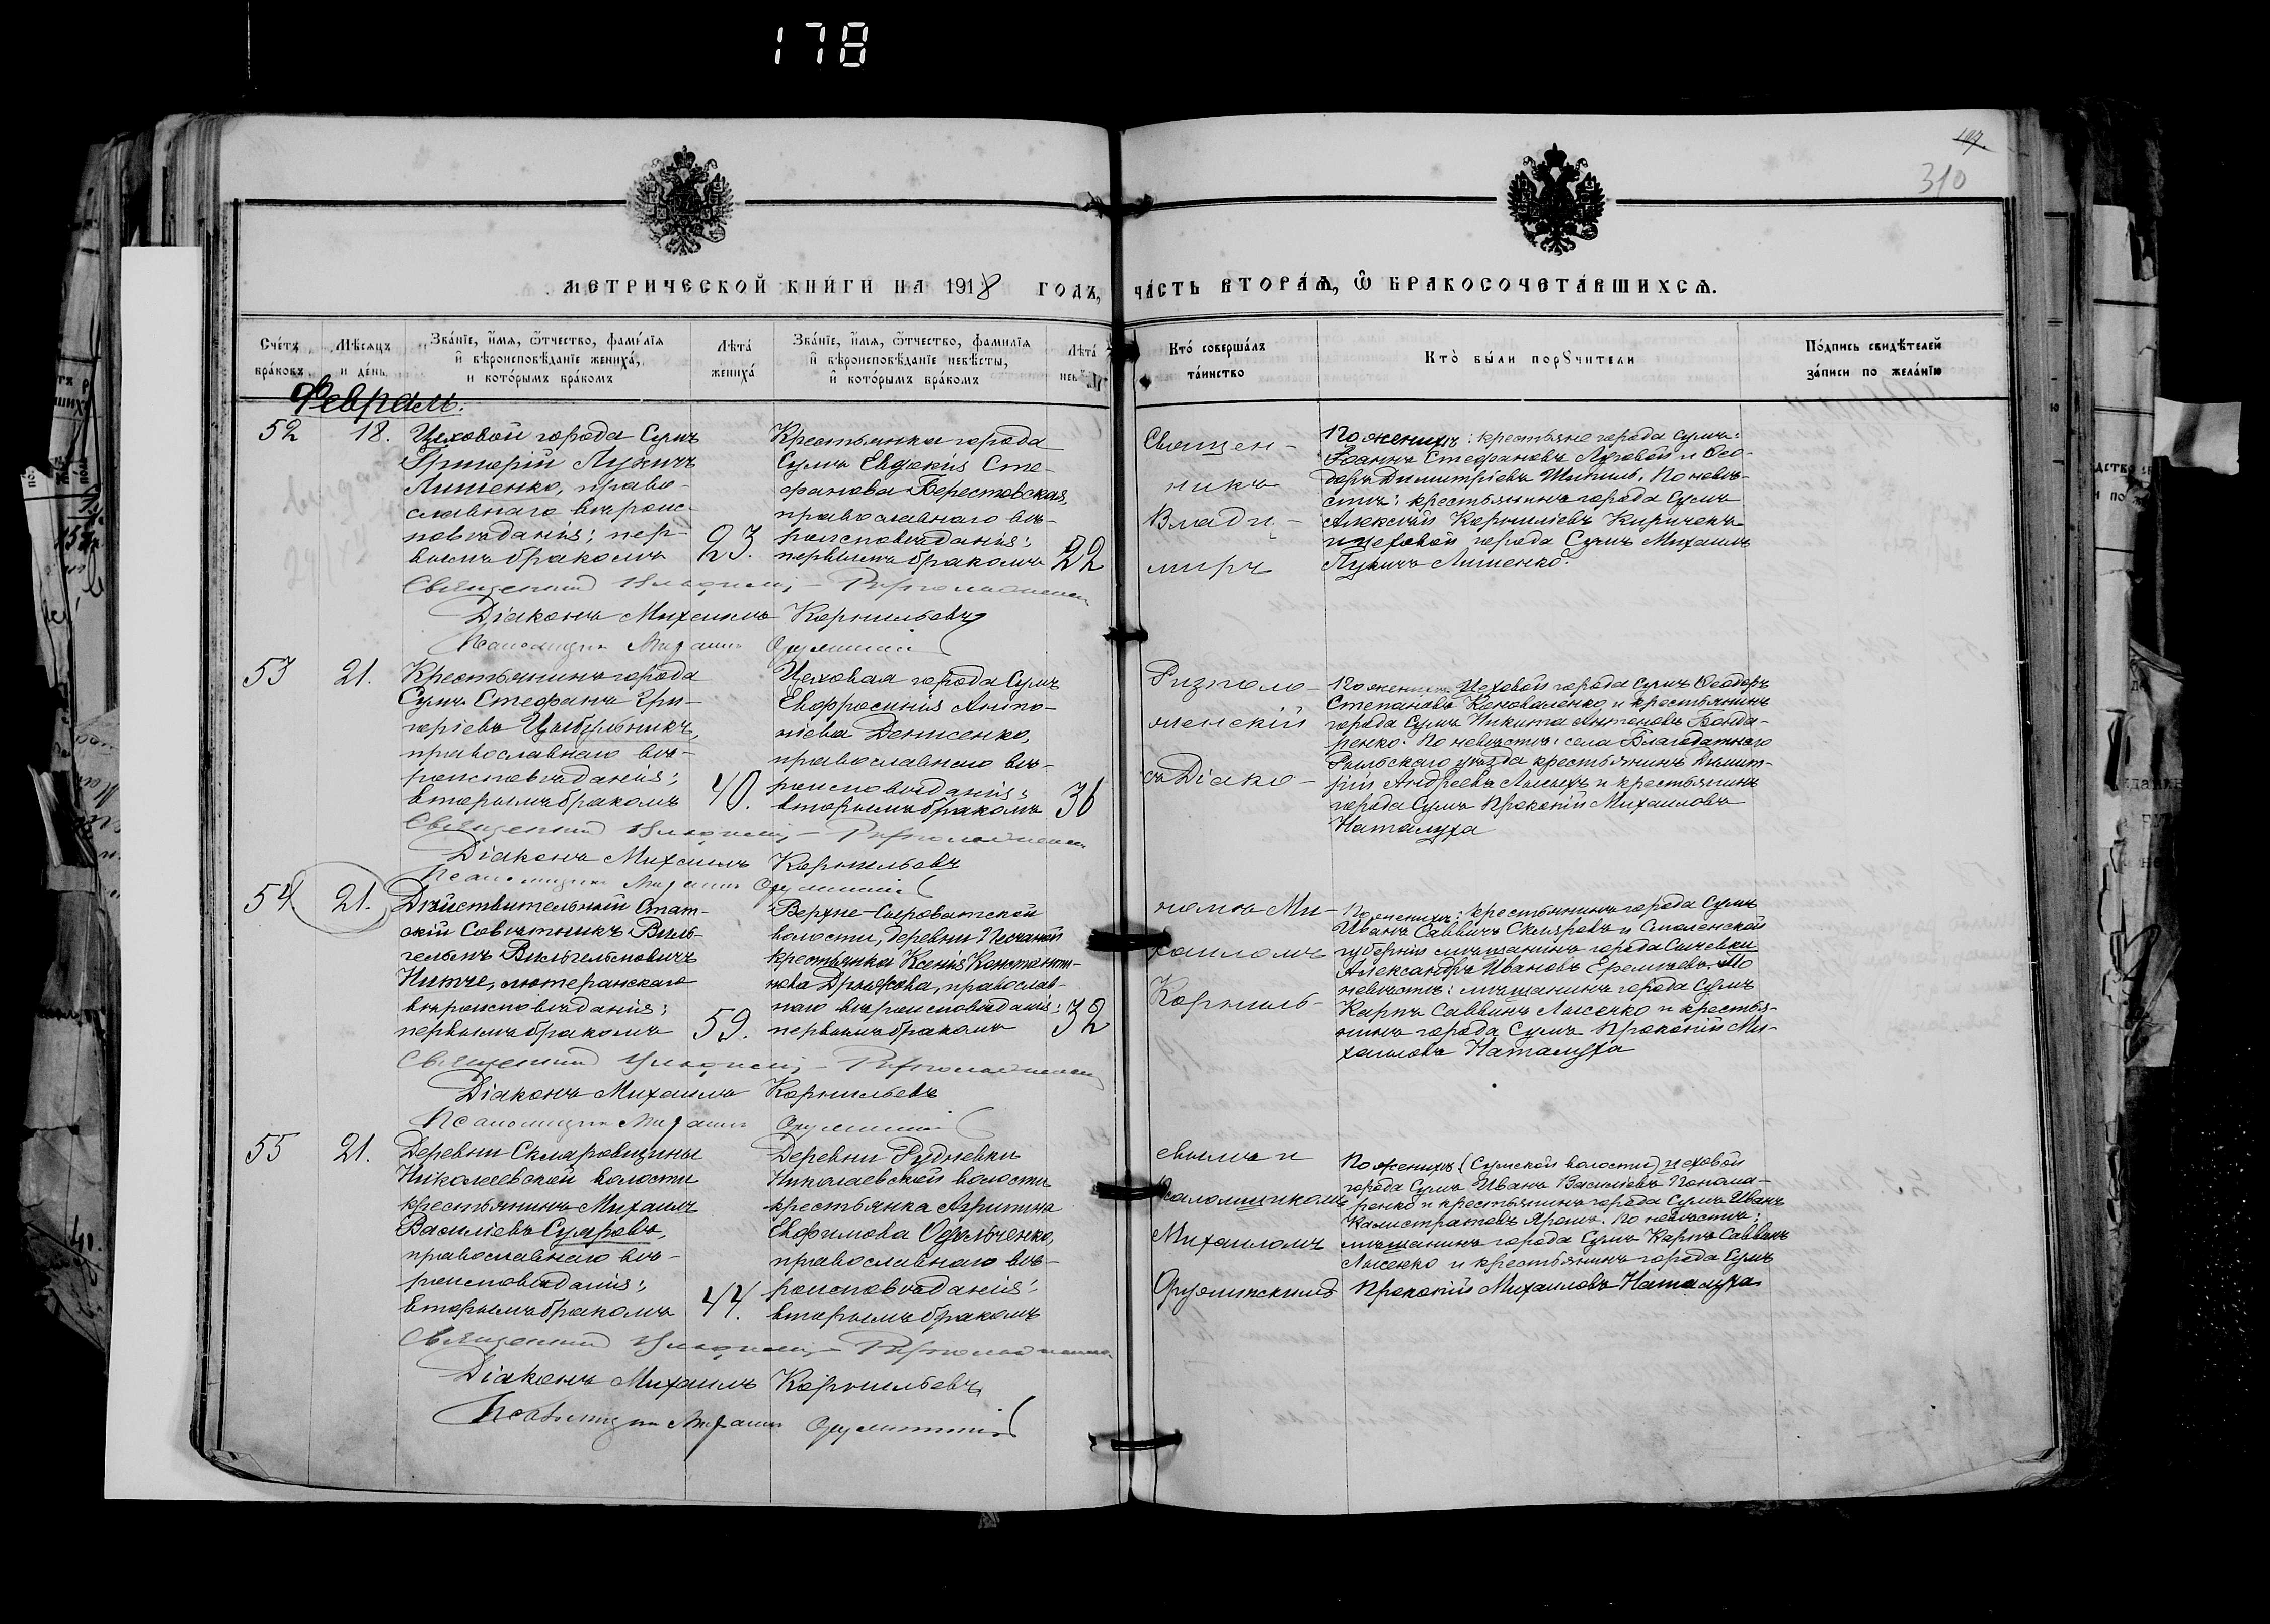 178
197.
310
МЕТРИЧЕСКОЙ КНИ́ГИ НА 1918 ГОДЪ, ЧА́СТЬ ВТОРА́Ѧ, Ѽ БРАКОСОЧЕТА́ВШИХСѦ.
Сче́тъ бра́ковъ.
Мѣ́сяцъ и де́нь
Зва́нїе, и҆́мѧ, ѻ҆́тчество, фами́лїя и҆ вѣроисповѣ́данїе жениха́, и кото́рымъ бра́комъ
Лѣта́ жениха́
Зва́нїе, и҆́мѧ, ѻ҆́тчество, фами́лїя и҆ вѣроисповѣ́данїе невѣ́сты, и҆ кото́рымъ бра́комъ
Лѣта́
Кто́ соверша́лъ та́инство
Кто̀ бы́ли порꙋчи́тели
По́дпись свидѣ́телей за́писи по жела́нїю
Февраль.
52
18.
Цеховой города Сумъ
Григорій Лукичъ
Лишенко, право-
славнаго вѣроис-
повѣданія; пер-
вымъ бракомъ
23.
Крестьянка города
Сумъ Евдокія Сте-
фанова Берестовская,
православнаго вѣ-
роисповѣданія;
первымъ бракомъ
22
Священ-
никъ
Влади-
миръ
По женихѣ: крестьяне города Сумъ:
Іоаннъ Стефановъ Луговой и Ѳео-
доръ Димитріевъ Шипиль. По невѣ-
стѣ: крестьянинъ города Сумъ
Алексѣй Корниліевъ Кириченко
и цеховой города Сумъ Михаилъ
Лукичъ Лишенко.
Священникъ Владиміръ Ризположенскій
Діаконъ Михаилъ Корнильевъ
Псаломщикъ Михаилъ
53
21.
Крестьянинъ города
Сумъ Стефанъ Гри-
горіевъ Цыбульникъ,
православнаго вѣ-
роисповѣданія;
вторымъ бракомъ
40.
Цеховая города Сумъ
Евфросинія Антo-
ніева Денисенко,
православнаго вѣ-
роисповѣданія;
вторымъ бракомъ
36
Ризполо-
женскій
съ Діако-
По женихѣ: Цеховой города Сумъ Ѳеодоръ
Степановъ Коноваленко и крестьянинъ
города Сумъ Никита Антоновъ Бонда-
ренко. По невѣстѣ: села Благодатнаго
Рыльскаго уѣзда крестьянинъ Димит-
рій Андреевъ Лысыхъ и крестьянинъ
города Сумъ Прокопій Михаиловъ
Наталуха
Священникъ Владиміръ Ризположенскій
Діаконъ Михаилъ Корнильевъ
Псаломщикъ Михаилъ
54
21.
Дѣйствительный Стат-
скій Совѣтникъ Виль-
гельмъ Вильгельмовичъ
Нитче, лютеранскаго
вѣроисповѣданія;
первымъ бракомъ
59.
Верхне-Сыроватской
волости, деревни Песчаной
крестьянка Ксенія Константи-
нова Дрыжова, православ-
наго вѣроисповѣданія;
первымъ бракомъ
32
номъ Ми-
хаиломъ
Корниль-
По женихѣ: крестьянинъ города Сумъ
Иванъ Саввичъ Скляровъ и Смоленской
губерніи мѣщанинъ города Сычевки
Александръ Ивановъ Еремѣевъ. По
невѣстѣ: мѣщанинъ города Сумъ
Карпъ Саввинъ Лысенко и крестья-
нинъ города Сумъ Прокопій Ми-
хаиловъ Наталуха
Священникъ Владиміръ Ризположенскій
Діаконъ Михаилъ Корнильевъ
Псаломщикъ Михаилъ
55
21.
Деревни Скляровщины
Николаевской волости
крестьянинъ Михаилъ
Василіевъ Суяровъ,
православнаго вѣ-
роисповѣданія;
вторымъ бракомъ
44.
Деревни Рудневки
Николаевской волости
крестьянка Агриппина
Евфимова
православнаго вѣ-
роисповѣданія;
вторымъ бракомъ
евымъ и
Псаломщикомъ
Михаиломъ
По женихѣ (Сумской волости) цеховой
города Сумъ Иванъ Василіевъ Понома-
ренко и крестьянинъ города Сумъ Иванъ
Калистратовъ Яремъ. По невѣстѣ:
мѣщанинъ города Сумъ Карпъ Саввинъ
Лысенко и крестьянинъ города Сумъ
Прокопій Михаиловъ Наталуха
Священникъ Владиміръ Ризположенскій
Діаконъ Михаилъ Корнильевъ
Псаломщикъ Михаилъ